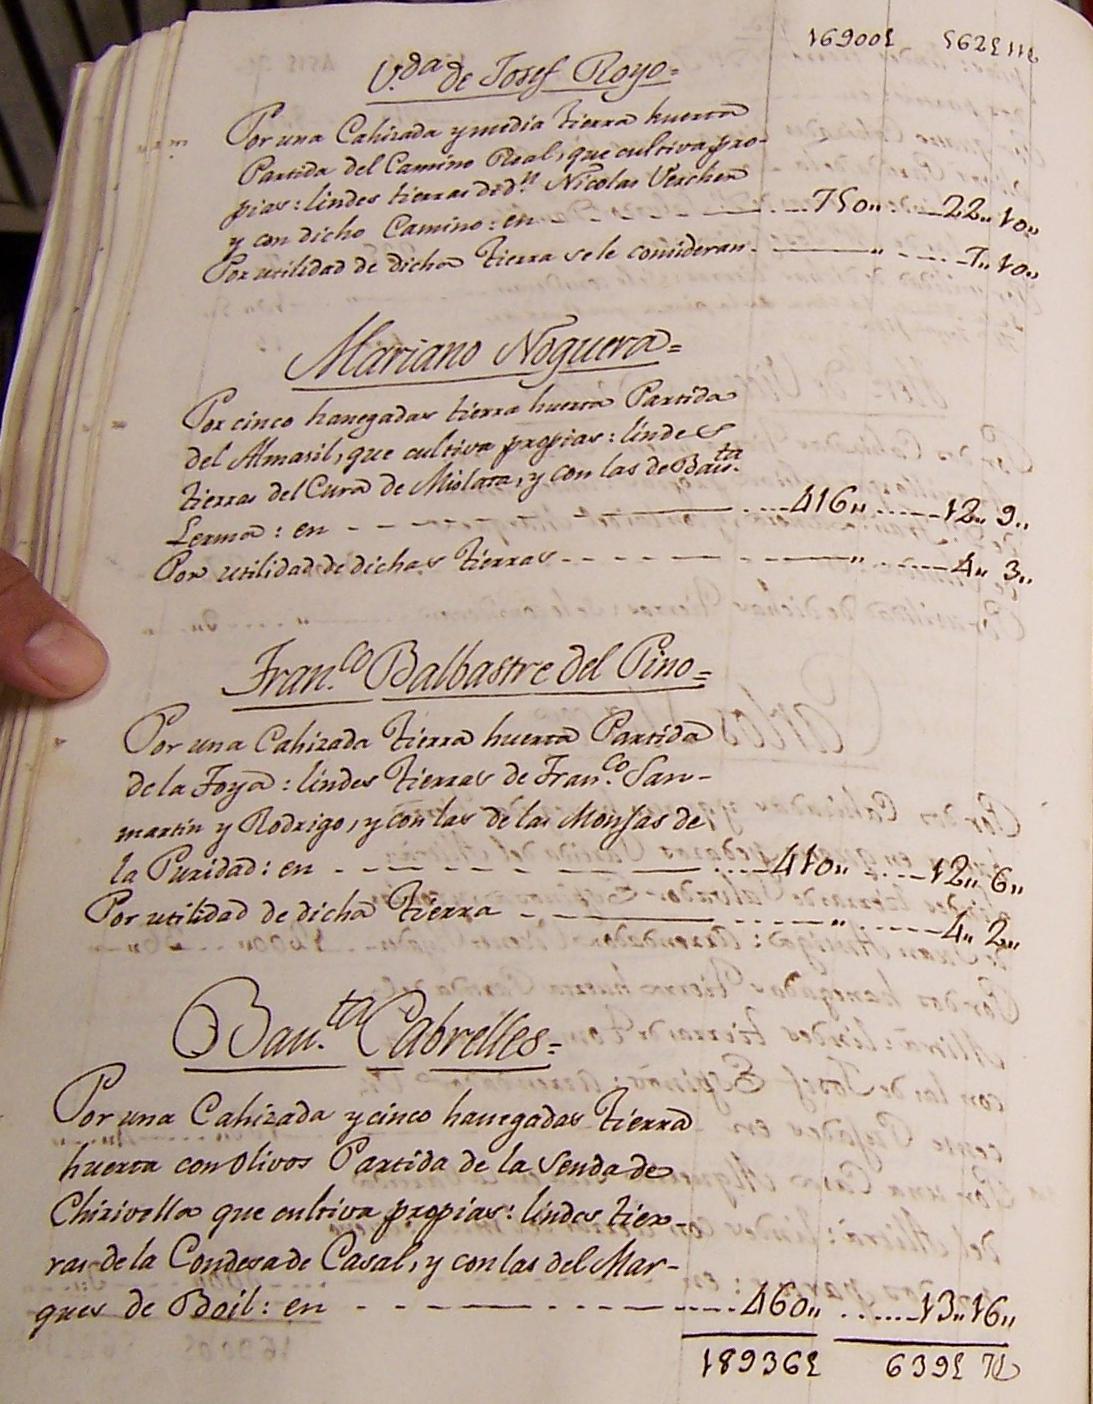 V.da de Josef Royo=
Por una Cahizada y media tierra huerta
Partida del Camino Real, que cultiva pro-
pias: lindes tierras de d.n Nicolas Vercher
y con dicho Camino: en 750,, 22,, 10,,
Por utilidad de dicha tierra se le consideran ,, 7,, 10,,
Mariano Noguera=
Por cinco hanegadas tierra huerta Partida
del Almasil, que cultiva propias: lindes
tierras del Cura de Mislata, y con las de Bau.ta
Lerma: en 416,, 12,, 9,,
Por utilidad de dichas tierras ,, 4,, 3,,
Fran.co Balbastre del Pino=
Por una Cahizada tierra huerta Partida
de la Foya: lindes tierras de Fran.co San-
martin y Rodrigo, y con las de las Monjas de
la Puridad: en 410,, 12,, 6,,
Por utilidad de dicha tierra ,, 4,, 2,,
Bau.ta Cabrelles=
Por una Cahizada y cinco hanegadas tierra
huerta con olivos Partida de la Senda de
Chirivella que cultiva propias: lindes tier-
ras de la Condesa de Casal, y con las del Mar-
ques de Boil: en 460,, 13,, 16,,